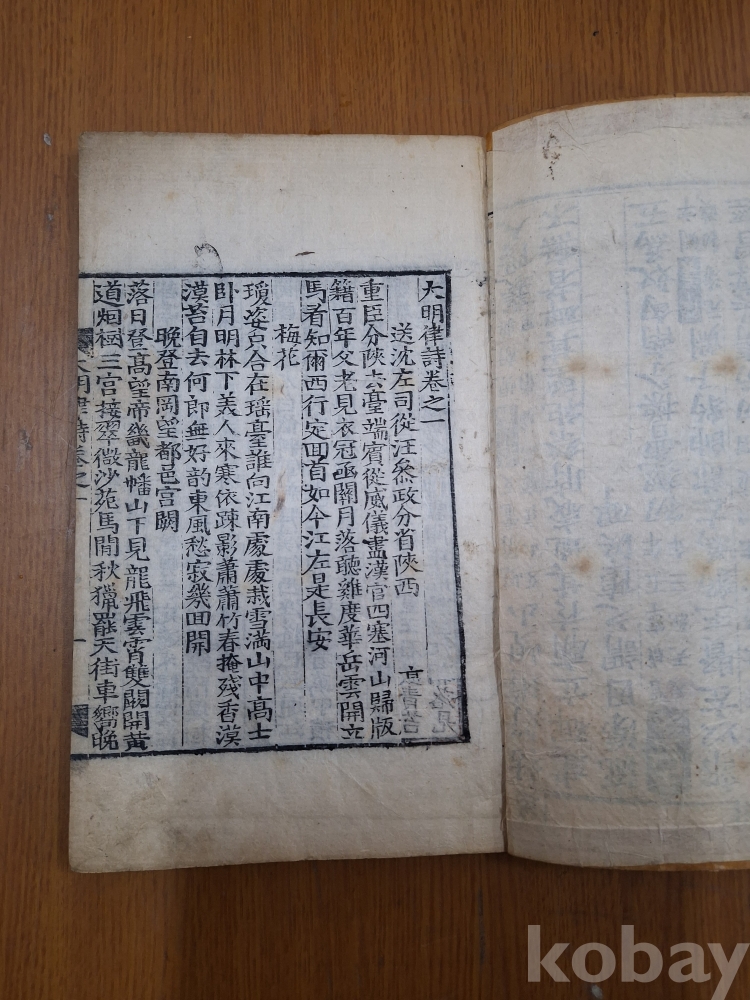 大明律詩卷之一
送沈左司從汪叅政分省陝西
高青
重臣分陝去臺端賓從威儀盡漢官四塞河山歸版
籍百年父老見衣冠凾關月落聽雞度華岳雲開立
馬看知爾西行定回首如今江左是長安
梅花
瓊姿只合在瑶臺誰向江南處處栽雪滿山中高士
卧月明林下美人來寒依疎影蕭蕭竹春掩殘香漠
漠苔自去何郎無好韵東風愁寂幾囬開
晚登南岡望都邑宮闕
落日登高望帝畿龍蟠山下見龍飛雲霄雙闕開黃
道烟樹三宮接翠微沙苑馬閒秋獵罷天街車響晚
大明律詩卷之一
kobay